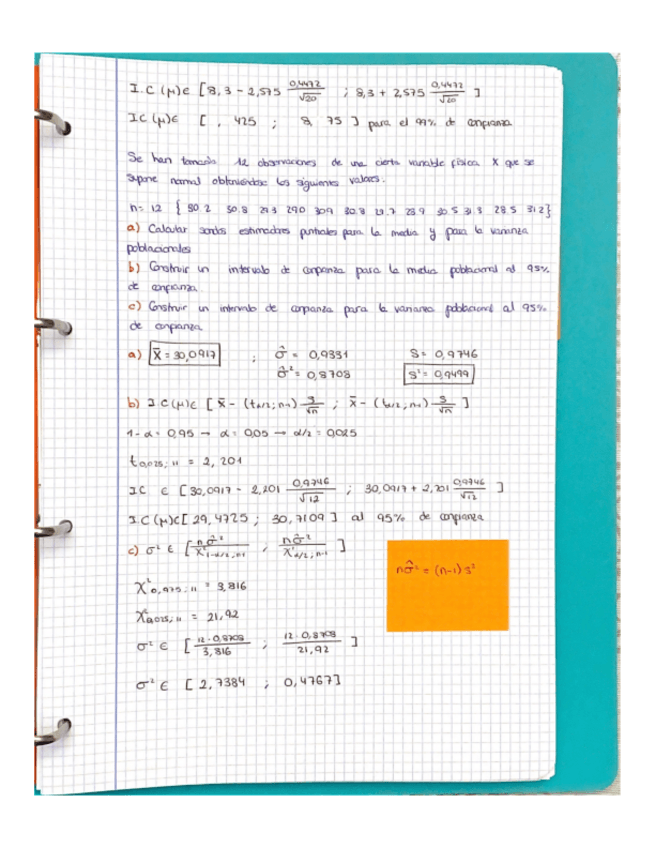 I.C (μ)∈ [8,3 - 2,575 0,4472/√20 ; 8,3 + 2,575 0,4472/√20 ]
IC (μ)∈ [ , 425 ; 8, 75 ] para el 99% de confianza
Se han tomado 12 observaciones de una cierta variable física X que se
supone normal obteniéndose los siguientes valores:
n= 12 { 30.2 30.8 29.3 290 309 30.8 29.7 28.9 30.5 31.3 28.5 31.2}
a) Calcular sendos estimadores puntuales para la media y para la varianza
poblacionales
b) Construir un intervalo de confianza para la media poblacional al 95%
de confianza
c) Construir un intervalo de confianza para la varianza poblacional al 95%
de confianza
a) x̄ = 30,0917 ; σ̂ = 0,9331 S = 0,9746
σ̂² = 0,8708 s² = 0,9499
b) I C(μ)∈ [ x̄ - (tα/2; n-1) s/√n ; x̄ - (tα/2; n-1) s/√n ]
1 - α = 0,95 → α = 0,05 → α/2 = 0,025
t0,025; 11 = 2, 201
IC ∈ [30,0917 - 2,201 0,9746/√12 ; 30,0917 + 2,201 0,9746/√12 ]
I.C(μ)∈[29,4725 ; 30,7109] al 95% de confianza
c) σ² ∈ [nσ̂²/χ²1-α/2; n-1 , nσ̂²/χ²α/2; n-1 ]
nσ̂² = (n-1) s²
χ²0,975; 11 = 3,816
χ²0,025; 11 = 21,92
σ² ∈ [12·0,8708/3,816 ; 12·0,8708/21,92 ]
σ² ∈ [ 2,7384 ; 0,4767]